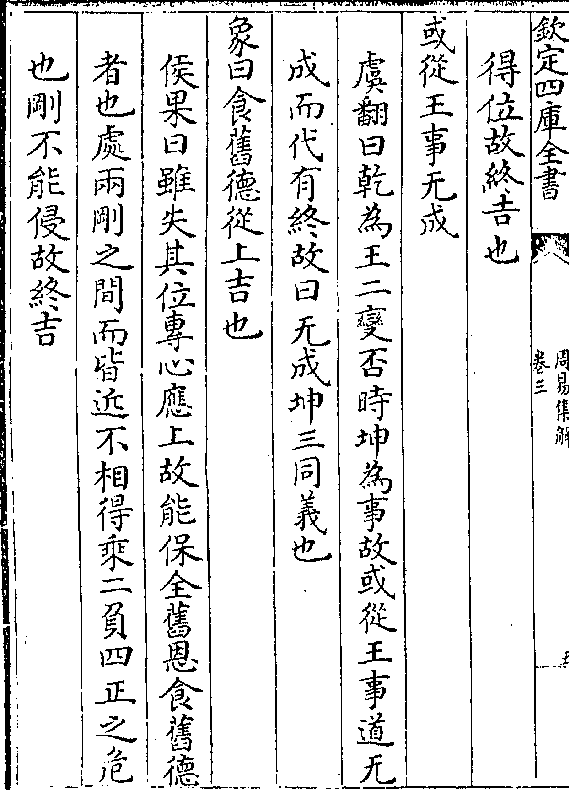 欽定四庫全書
周易集解
卷三
五
得位故終吉也
或從王事无成
虞翻曰乾為王二變否時坤為事故或從王事道无
成而代有終故曰无成坤三同義也
象曰食舊德從上吉也
侯果曰雖失其位專心應上故能保全舊恩食舊德
者也處兩剛之間而皆近不相得乘二負四正之危
也剛不能侵故終吉